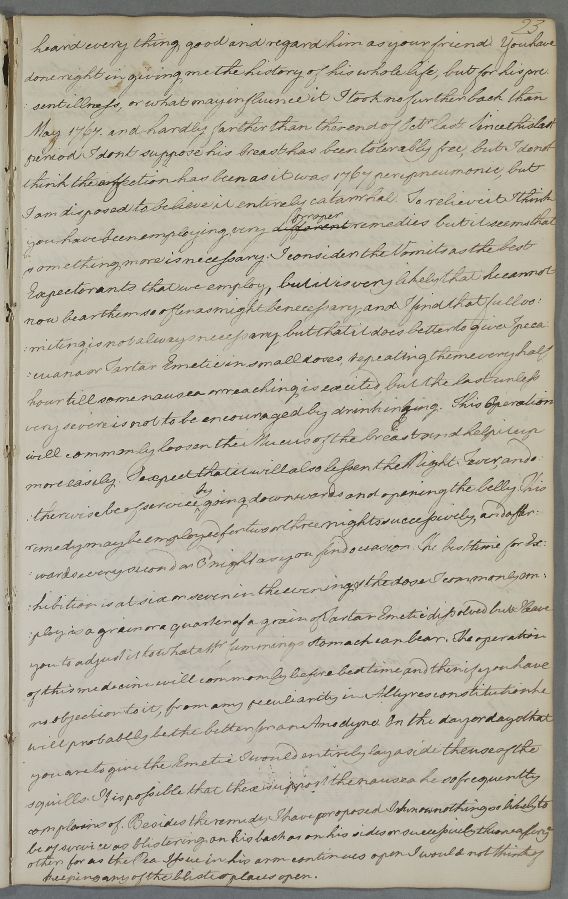 23
heard every thing good and regard him as your friend You have
done right in giving me the history of his whole life, but for his pre
:sent illness, or what may influence it I look no further back than
May 1767 and hardly farther than the end of Octr last. Since this last
period I dont suppose his breast has been tolerably free but I do not
think the affection has been as it was 1767 peripneumonic, but
I am disposed to believe it entirely catarrhal. To relieve it I think
you have been employing very different proper remedies but it seems that
something more is necessary. I consider the Vomits as the best
Expectorants that we employ, but it is very likely that he cannot
now bear them so often as might be necessary and I find that full vo:
:miting is not always necessary but that it does better to give Ipeca
:cuana or Tartar Emetic in small doses, repeating them every half
hour till some nausea or reaching is excited, but the last unless
very severe is not to be encouraged by drinking. This Operation
will commonly loosen the Mucus of the breast and help it up
more easily. I expect that it will also lessen the Night Fever, and o:
:therwise be of service by going downwards and opening the belly. This
remedy may be employed for two or three nights successively and after:
:wards every second or 3d night as you find occasion. The best time for Ex:
:hibition is at six or seven in the evening & the dose I commonly em:
:ploy is a grain or a quarter of a grain of Tartar Emetic dissolved but I leave
you to adjust it to what Mr Cummings stomach can bear. The operation
of this medicine will commonly be before bed time and then if you have
no objection to it, from any peculiarity in Allgres constitution he
will probably be the better for an Anodyne. On the day or days that
you are to give the Emetic I would entirely lay aside the use of the
squills. It is possible that these support the nausea he so frequently
complains of. Besides the remedy I have proposed I know nothing so likely to
be of service as blistering on his back or on his sides or successively the one after
other for as the Pea Issue in his arm continues open I would not think of
keeping any of the blistered places open.